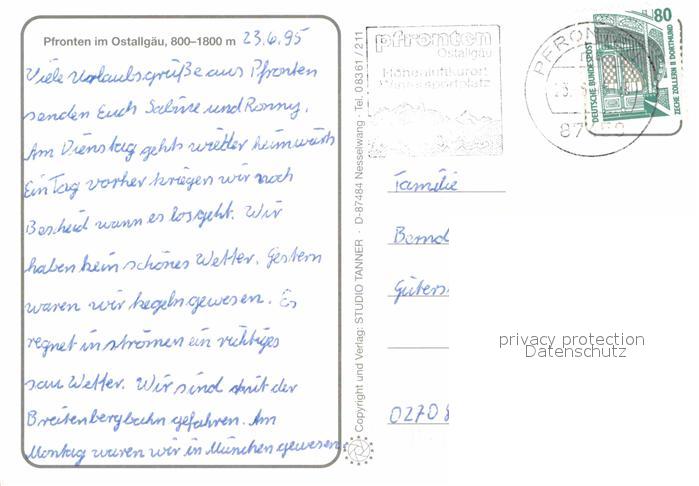 Pfronten im Ostallgäu, 800–1800 m 23.6.95
Viele Urlaubsgrüße aus Pfronten
senden Euch Sabine und Ronny.
Am Dienstag gehts wieder heimwärts
Ein Tag vorher kriegen wir noch
Bescheid wann es losgeht. Wir
haben kein schönes Wetter. Gestern
waren wir kegeln gewesen. Es
regnet in strömen ein richtiges
sau Wetter. Wir sind mit der
Breitenbergbahn gefahren. Am
Montag waren wir in München gewesen.
Copyright und Verlag: STUDIO TANNER · D-87484 Nesselwang · Tel. 0 83 61 / 2 11
pfronten
Ostallgäu
Höhenluftkurort
Wintersportplatz
PFRON
87
80
DEUTSCHE BUNDESPOST
ZECHE ZOLLERN II DORTMUND
Familie
Bernd
Güters
privacy protection
Datenschutz
02708